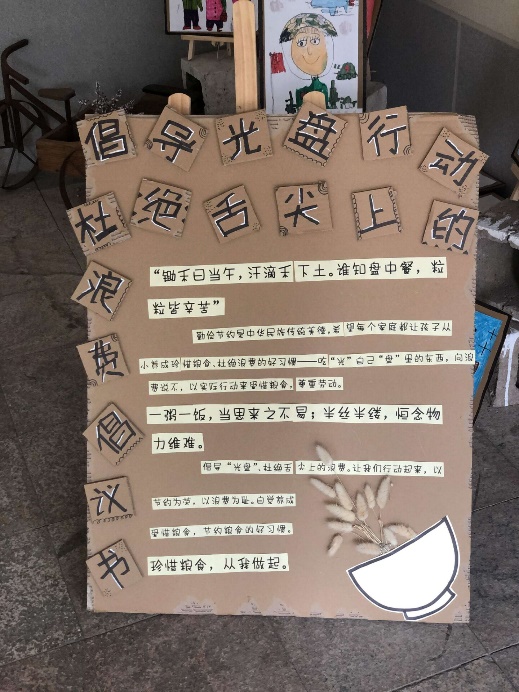 倡导光盘行动
杜绝舌尖上的
浪
费
倡
议
书
“锄禾日当午，汗滴禾下土。谁知盘中餐，粒
粒皆辛苦”
勤俭节约是中华民族传统美德，是每个家庭都让孩子从
小养成珍惜粮食、杜绝浪费的好习惯——吃“光”自己“盘”里的东西，向浪
费说不，以实际行动来爱惜粮食，尊重劳动。
一粥一饭，当思来之不易；半丝半缕，恒念物
力维难。
倡导“光盘”，杜绝舌尖上的浪费。让我们行动起来，以
节约为荣，以浪费为耻。自觉养成
爱惜粮食，节约粮食的好习惯。
珍惜粮食，从我做起。